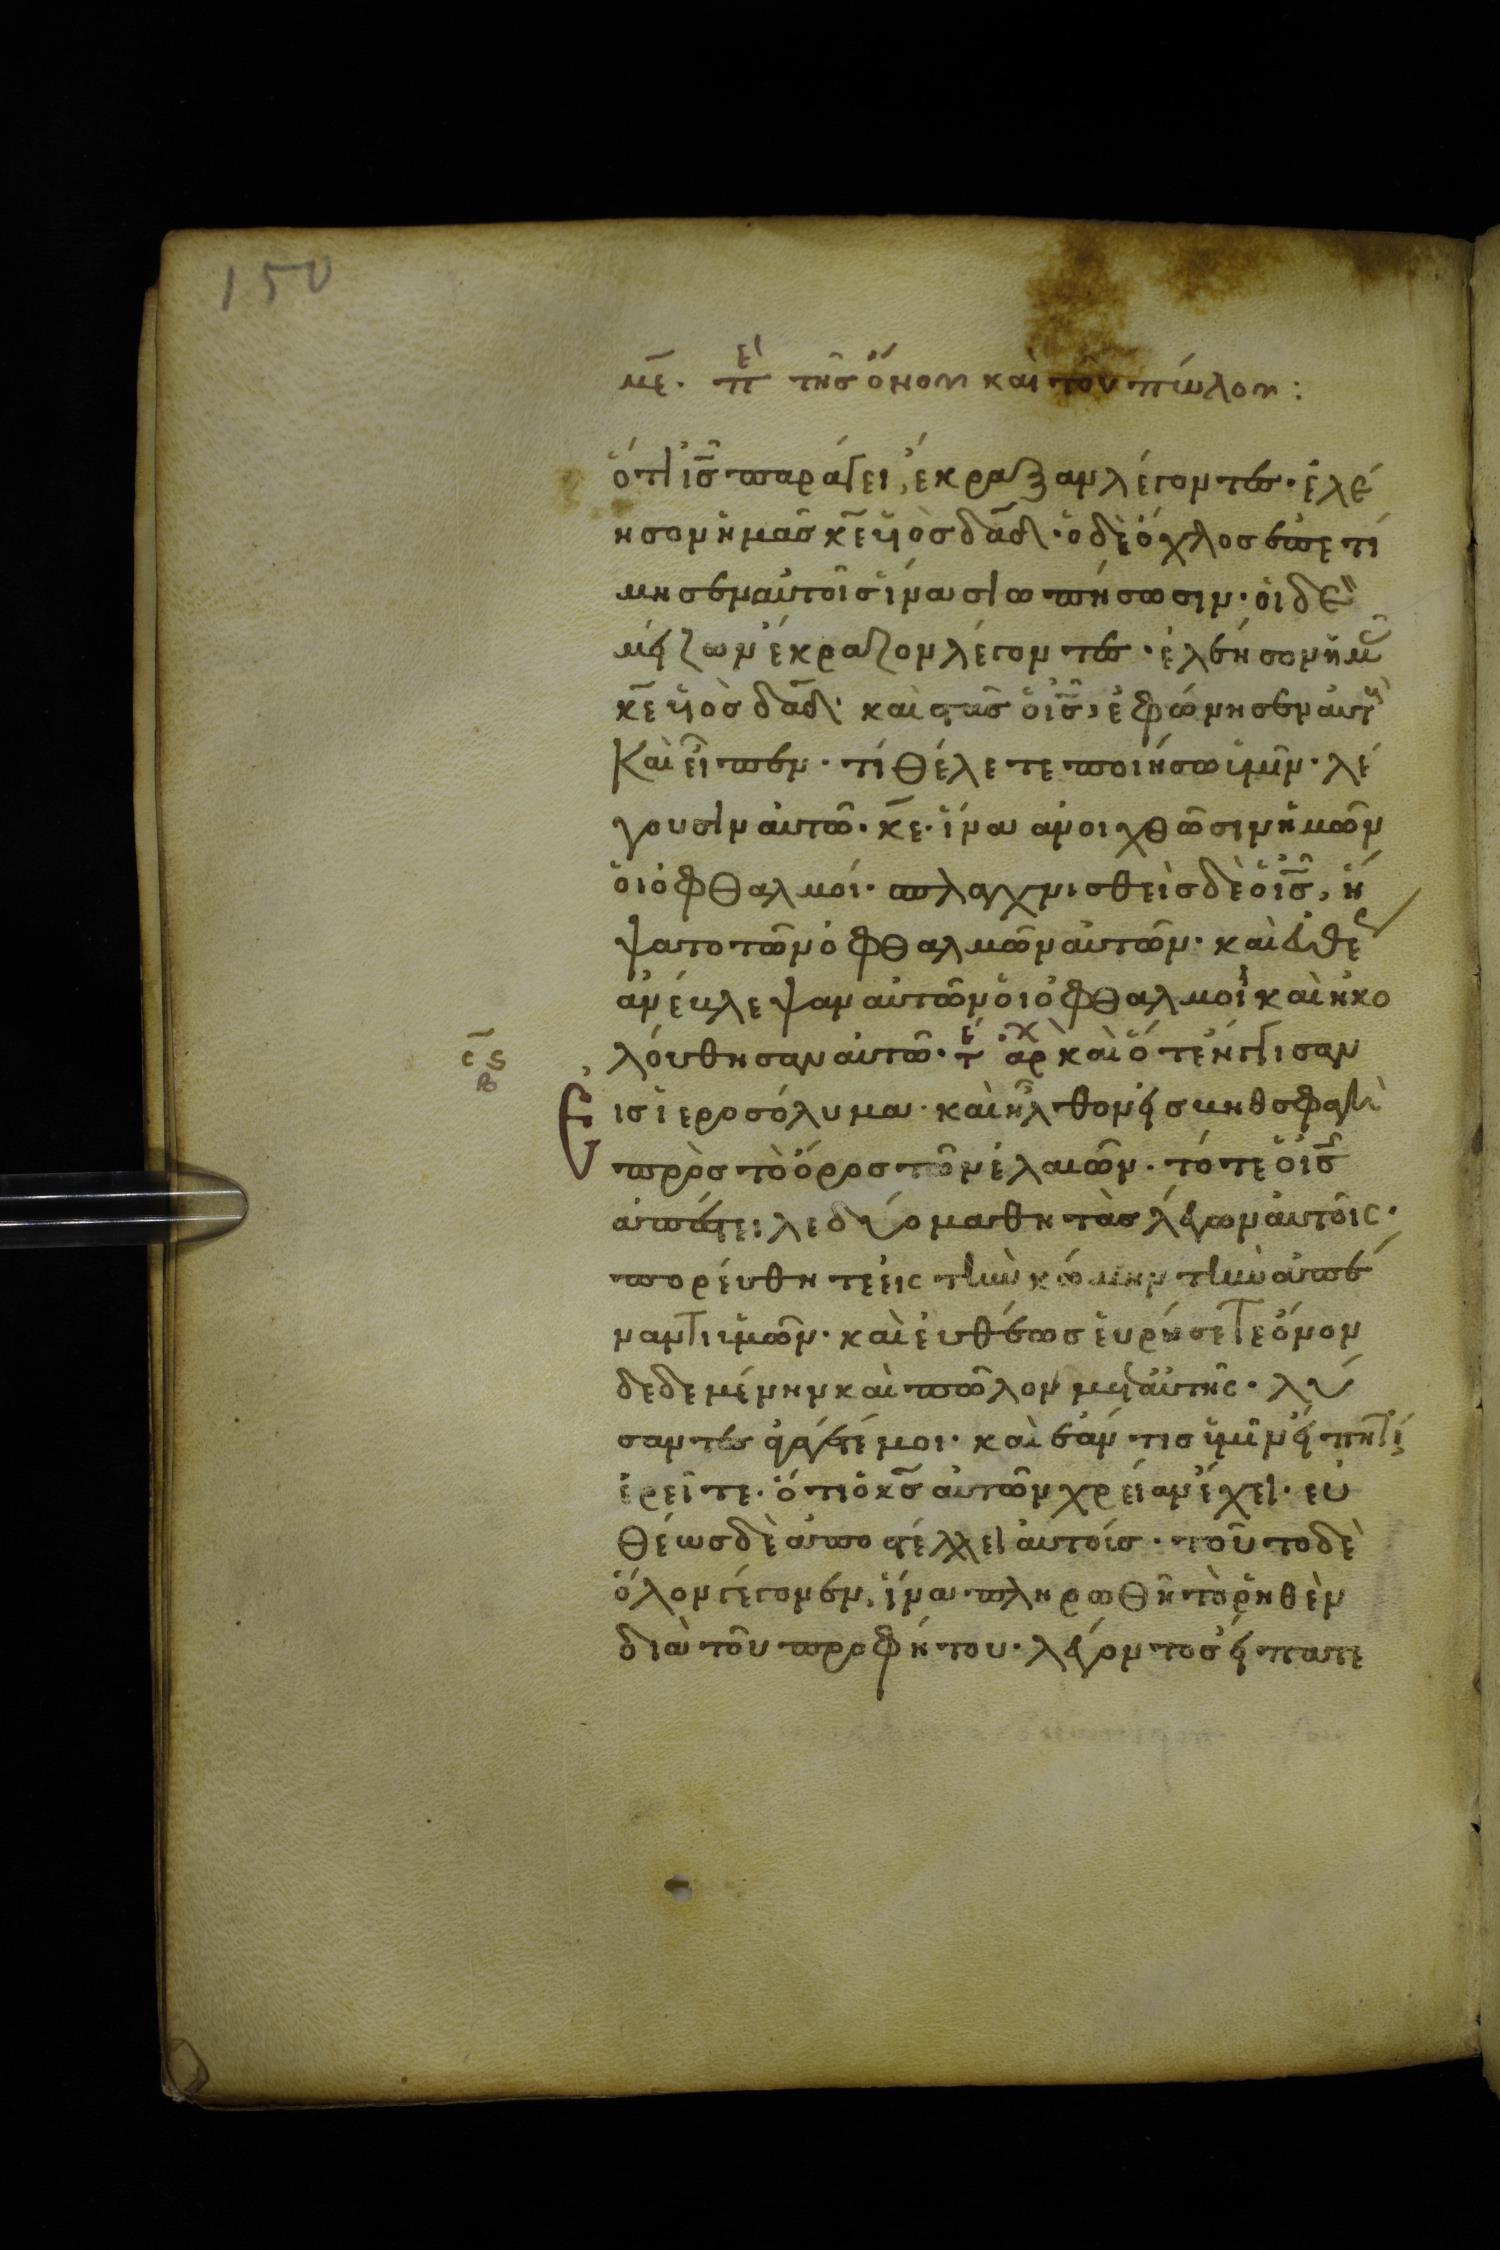 150
με̅. πε τῆσ ὄνου καὶ τοῦ πώλου:
ὅτι ι̅σ̅ παράγει, ἔκραξαν λέγοντεσ· ἐλέ
ησον ἡμᾶσ κ̅ε̅ υἱὸσ δα̅δ̅· ὁ δὲ ὄχλοσ ἐπετί
μησεν αὐτοῖσ ἵνα σιωπήσωσιν· οἱ δὲ
μεῖζων ἔκραζον λέγοντεσ· ἐλεήσον ἡμ
κ̅ε̅ υἱὸσ δα̅δ̅· καὶ στὰσ ὁ ι̅σ̅, ἐφώνησεν αὐτ
Καὶ εἶπεν· τί θέλετε ποιήσω ὑμῖν· λέ
γουσιν αὐτῶ· κ̅ε̅· ἵνα ἀνοιχθῶσιν ἡμῶν
ὁι ὀφθαλμοί· σπλαχνισθεὶσ δὲ ὁ ι̅σ̅, ἥ
ψατο τῶν ὀφθαλμῶν αὐτῶν· καὶ εὐθε
ἀνέβλεψαν αὐτῶν ὁι ὀφθαλμοὶ καὶ ἠκο
λούθησαν αὐτῶ· τε αρχ καὶ ὅτε ἤγγισαν
ϲ̅ϛ
Εἰσ ἱεροσόλυμα· καὶ ἦλθον εἰσ βηθσφαγὶ
πρὸσ τὸ ὄροσ τῶν ἐλαιῶν· τότε ὁ ι̅σ̅
ἀπέστειλε δύο μαθητὰσ λέγων αὐτοῖς·
πορεύθητε εἰς τὴν κώμην τὴν ἀπέ
ναντι ὑμῶν· καὶ εὐθέωσ εὑρήσετε ὄνον
δεδεμένην καὶ πῶλον μετ αὐτῆς· λύ
σαντεσ ἀγάγετέ μοι· καὶ ἐάν τισ ὑμῖν εἴπῃ τί
ἐρεῖτε· ὅτι ὁ κ̅σ̅ αὐτῶν χρείαν ἔχει· εὐ
θέωσ δὲ ἀποστέλλει αὐτούσ· τοῦτο δὲ
ὅλον γέγονεν, ἵνα πληρωθῆ τὸ ῥηθὲν
διὰ τοῦ προφήτου· λέγοντοσ εἴπατε